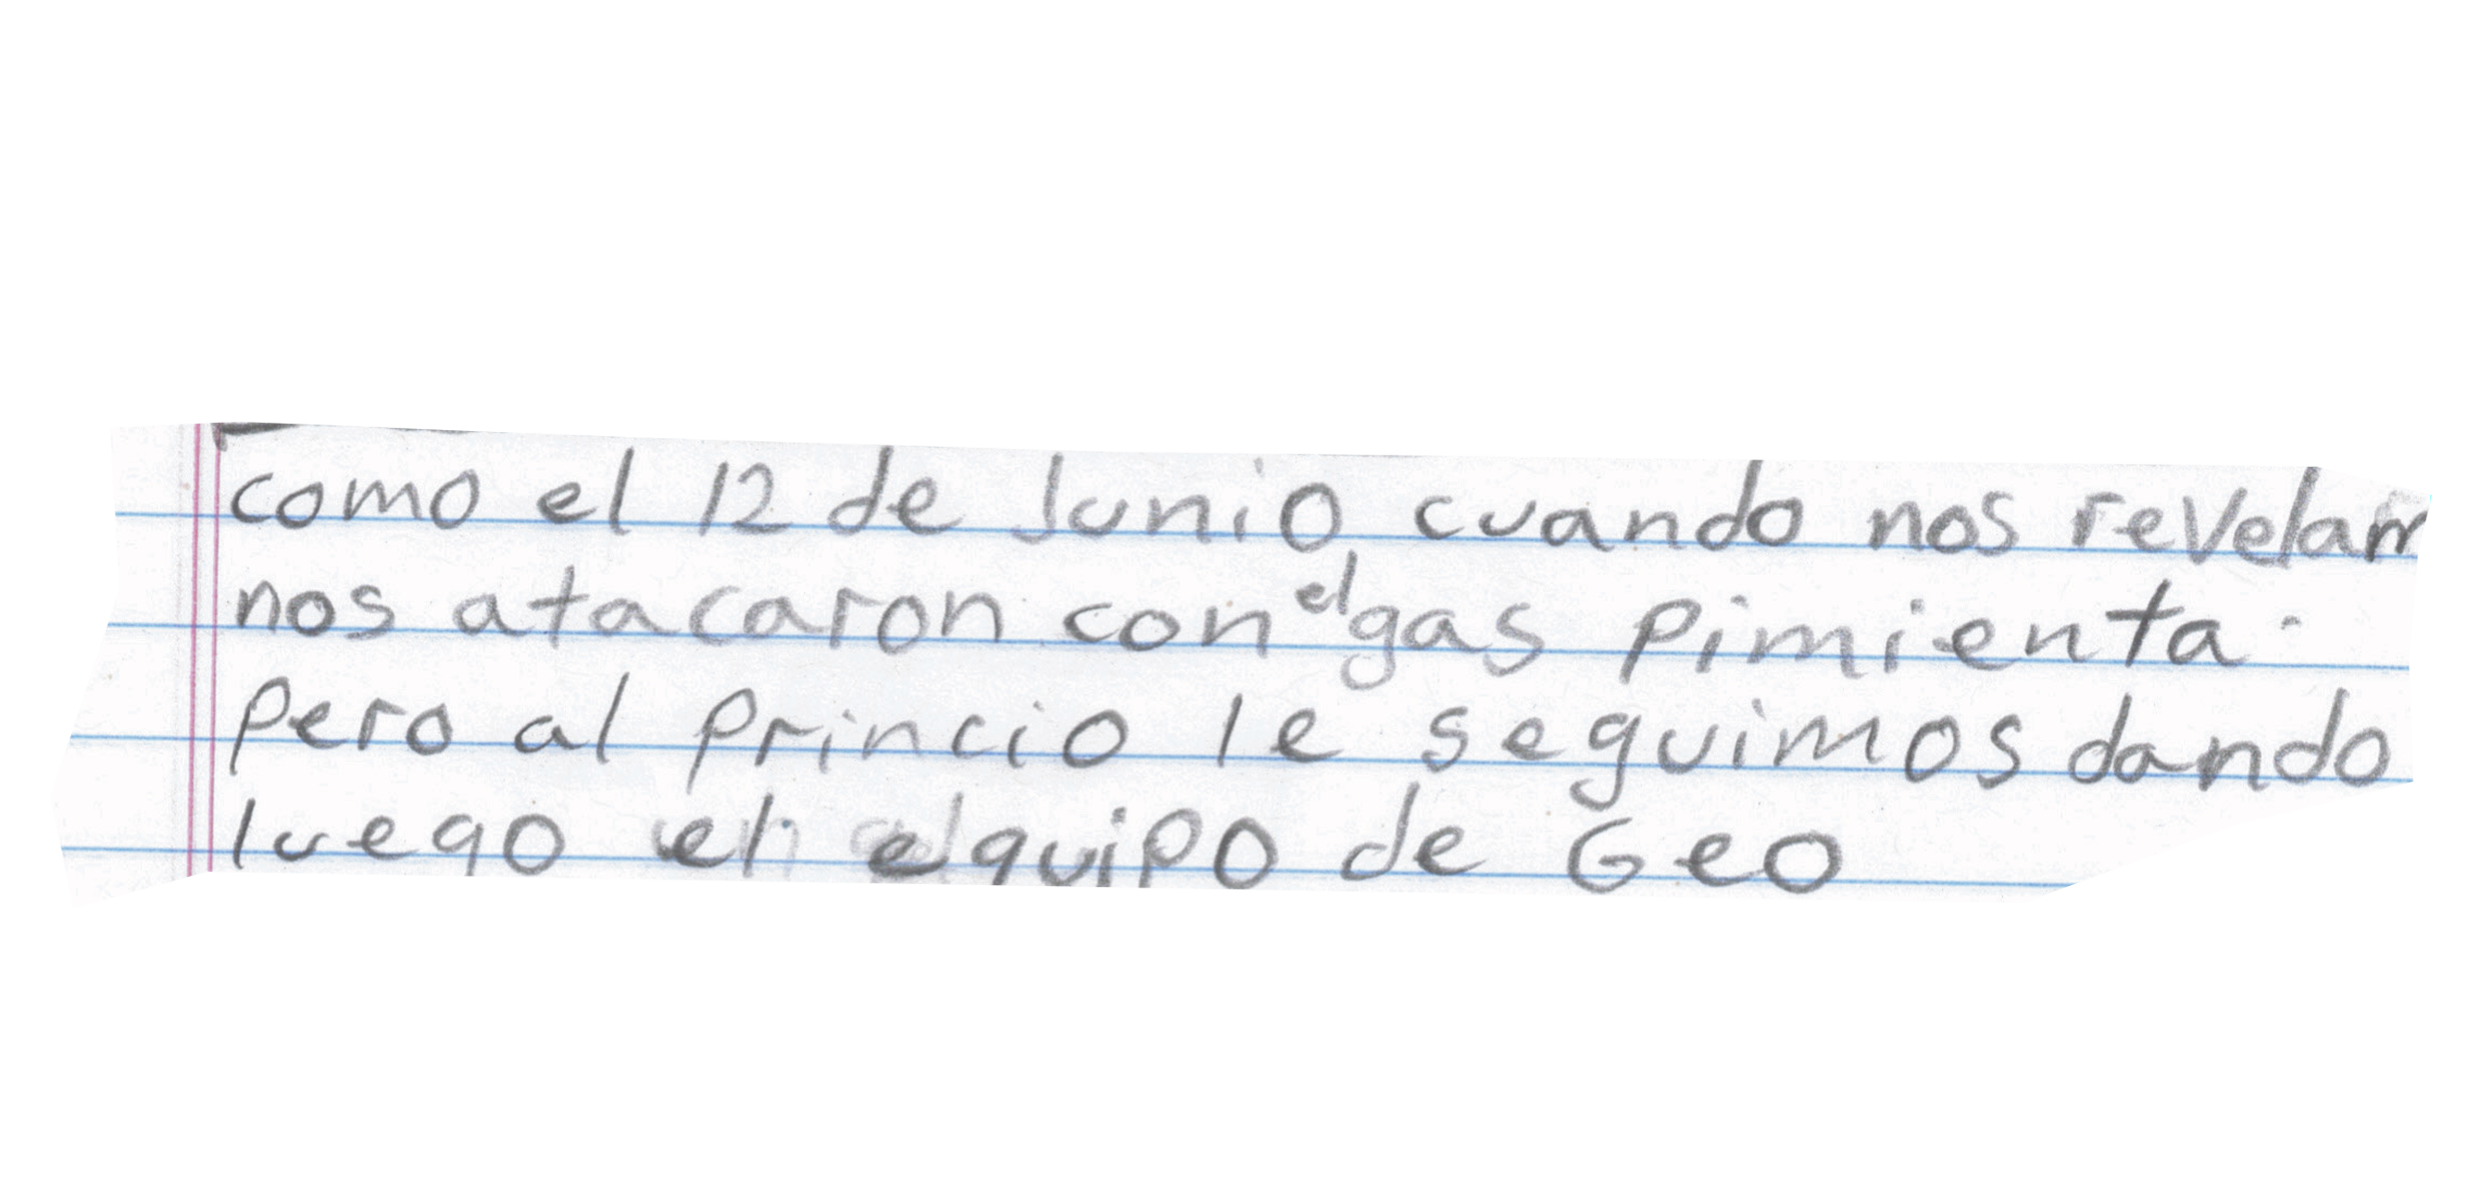 como el 12 de Junio, cuando nos revelam
nos atacaron con el gas pimienta.
Pero al princio le seguimos dando
luego el equipo de Geo